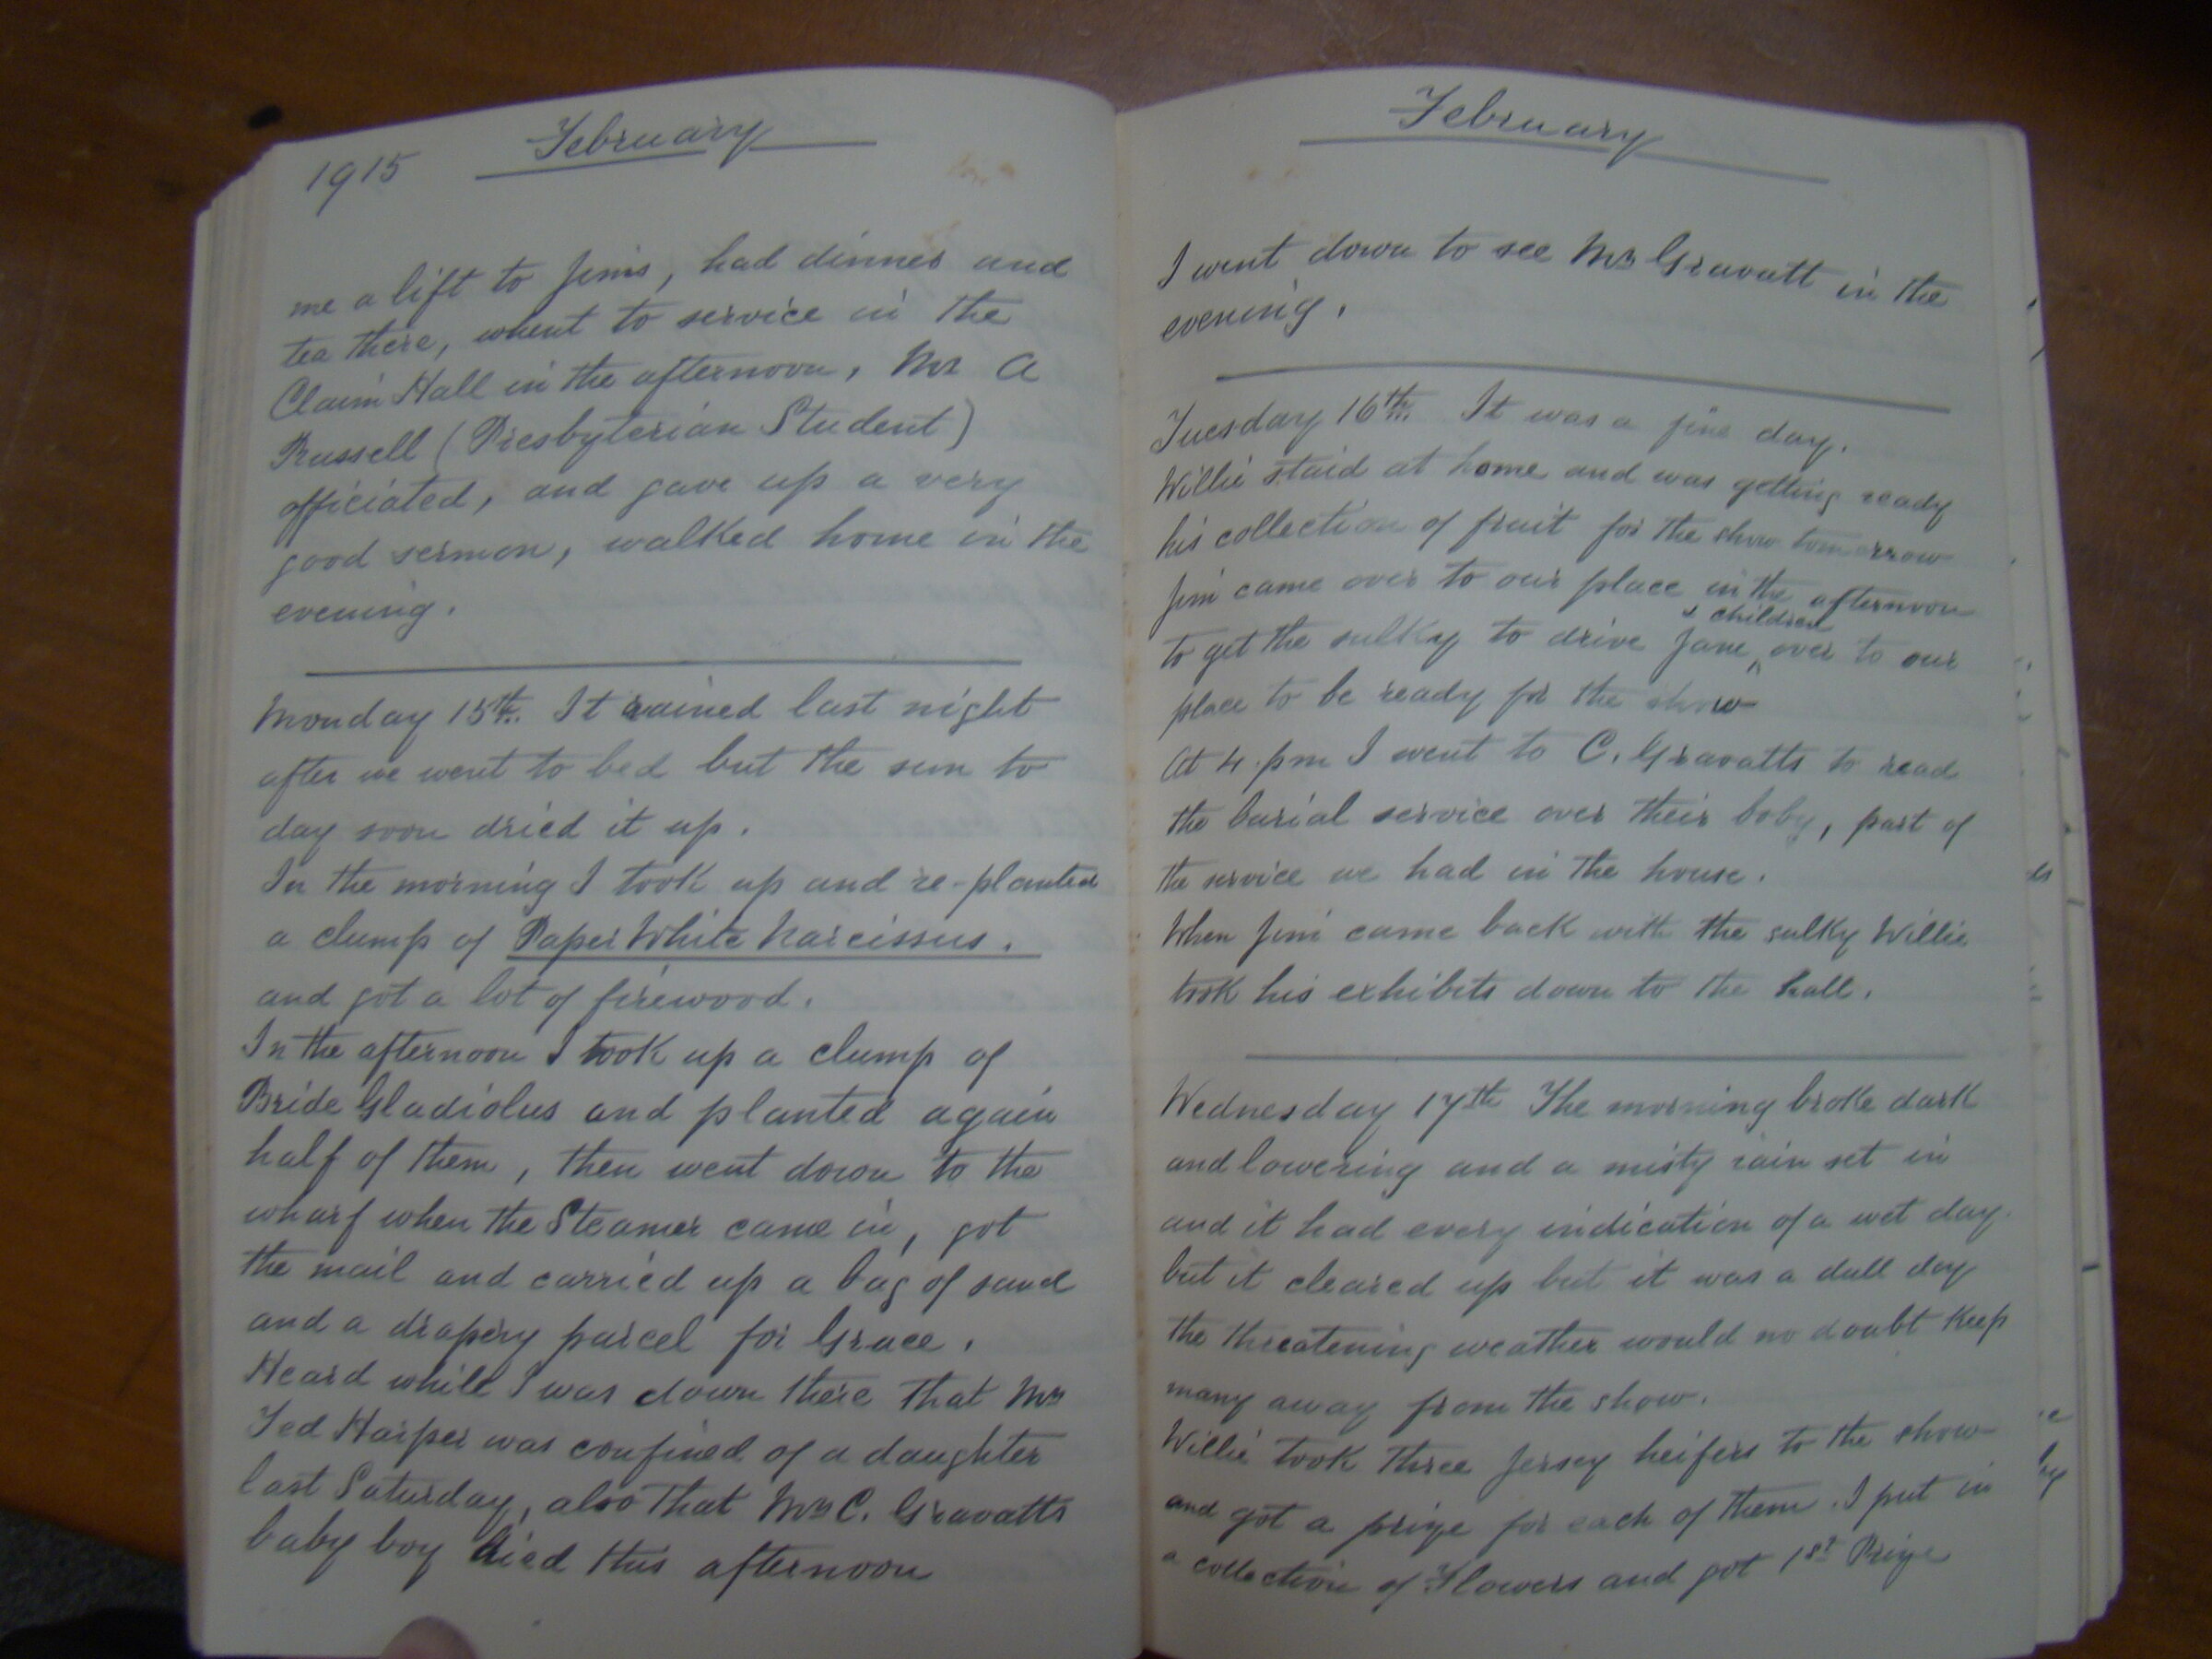 1915
February
me a lift to Jim's, had dinner and
tea there, whent to service in the
Claim Hall in the afternoon, Mr A
Russell (Presbyterian Student)
officiated, and gave up a very
good sermon, walked home in the
evening.
Monday 15th. It rained last night
after we went to bed but the sun to
day soon dried it up.
In the morning I took up and re-planted
a clump of Paper White Narcissus.
and got a lot of firewood.
In the afternoon I took up a clump of
Bride Gladiolus and planted again
half of them, then went down to the
wharf when the Steamer came in, got
the mail and carried up a bag of sand
and a drapery parcel for Grace.
Heard while I was down there that Mrs
Ted Harper was confined of a daughter
last Saturday, also that Mrs C. Gravatts
baby boy died this afternoon
February
I went down to see Mrs Gravatt in the
evening.
Tuesday 16th. It was a fine day.
Willie staid at home and was getting ready
his collection of fruit for the show tomorrow
Jim came over to our place in the afternoon
to get the sulky to drive Jane & children over to our
place to be ready for the show
At 4 pm I went to C. Gravatts to read
the burial service over their baby, part of
the service we had in the house.
When Jim came back with the sulky Willie
took his exhibits down to the hall.
Wednesday 17th The morning broke dark
and lowering and a misty rain set in
and it had every indication of a wet day.
but it cleared up but it was a dull day
the threatening weather would no doubt keep
many away from the show.
Willie took three Jersey heifers to the show
and got a prize for each of them. I put in
a collection of Flowers and got 1st Prize